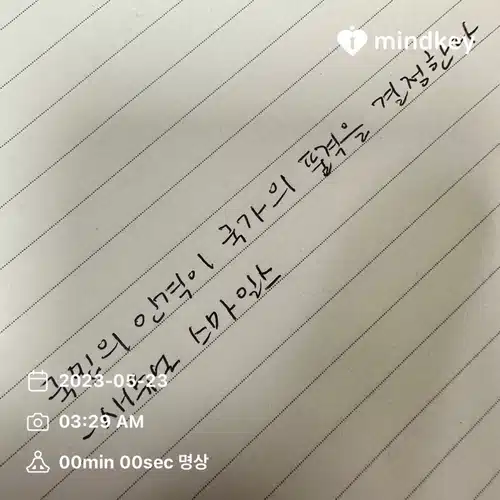 mindkey
국민의 인격이 국가의 품격을 결정한다
-새뮤얼 스마일스
2023-05-23
03:29 AM
00min 00sec 명상